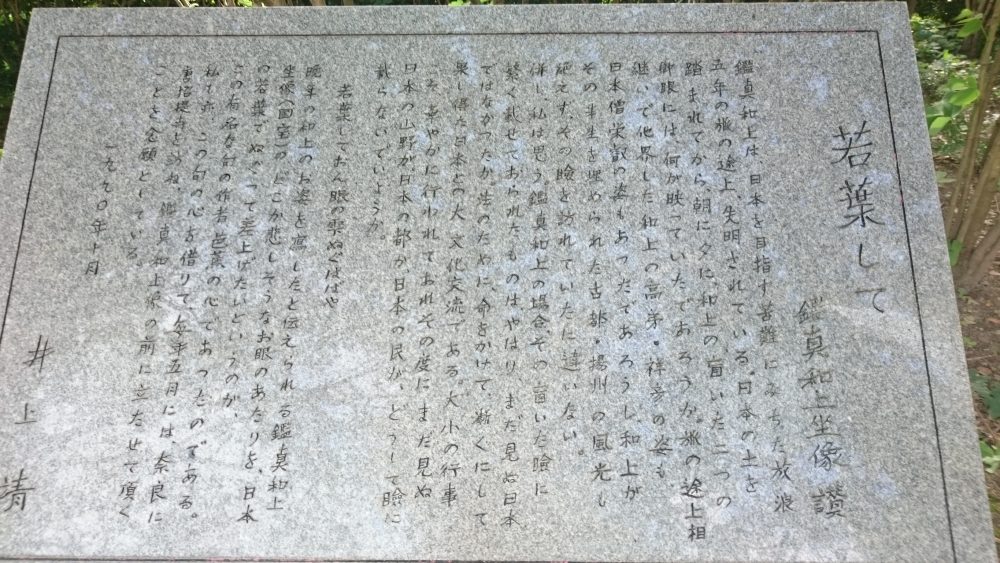 若葉して
鑑真和上坐像讃
鑑真和上は、日本を目指す苦難にみちた放浪
五年の旅の途上、失明されている。日本の土を
踏まれてから、朝に夕に、和上の盲いた二つの
御眼には、何が映っていたであろうか。旅の途上相
継いで他界した和上の高弟・祥彦の姿も
日本僧栄叡の姿もあったであろうし、和上が
その半生を埋められた古都・揚州の風光も
絶えず、その瞼を訪れていたに違いない。
併し、私は思う。鑑真和上の場合、その盲いた瞼に
繁く載せておられたものは、やはり、まだ見ぬ日本
ではなかったか。法のために、命をかけて、漸くにして
果し得た日本との大文化交流である。大小の行事
が華やかに行われており、その度に、まだ見ぬ
日本の山野が、日本の都が、日本の民が、どうして瞼に
載らないでいようか。
若葉しておん眼の雫ぬぐはばや
晩年の和上のお姿を写したと伝えられる鑑真和上
坐像(国宝)のどこか悲しそうなお眼のあたりを、日本
の若葉で、ぬぐって差上げたいというのが、
この有名な句の作者芭蕉の心であったのである。
私も亦、この句の心を借りて、毎年五月には奈良に
唐招提寺を訪ね、鑑真和上像の前に立たせて頂く
ことを念願としている。
一九九〇年十月
井上靖